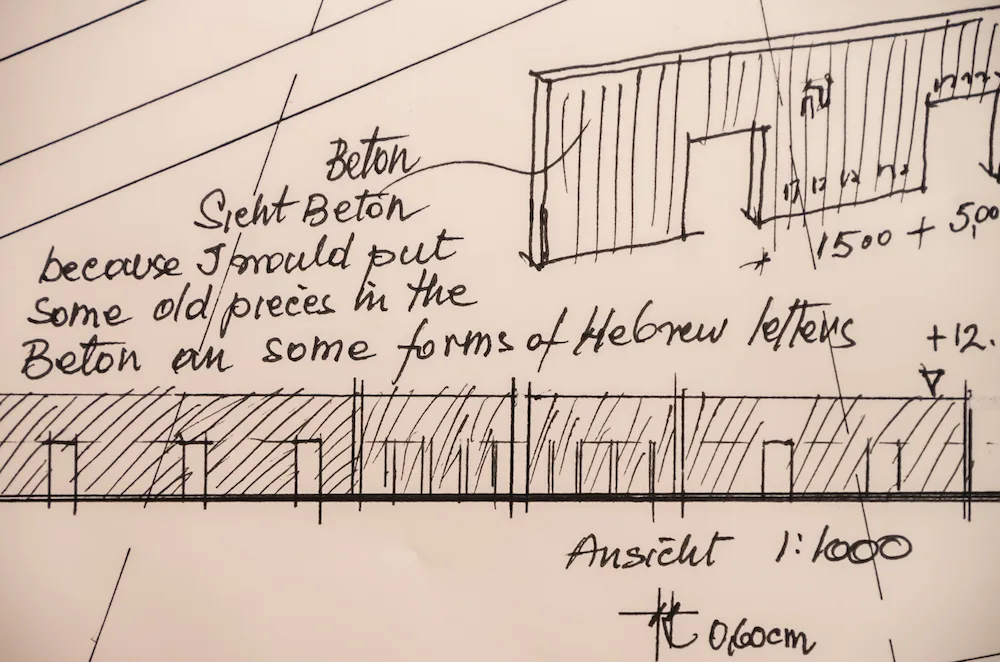 Beton
Sicht Beton
because I would put
some old pieces in the
Beton an some forms of Hebrew letters
1500 + 5,00
+12.
Ansicht 1:1000
0,60cm